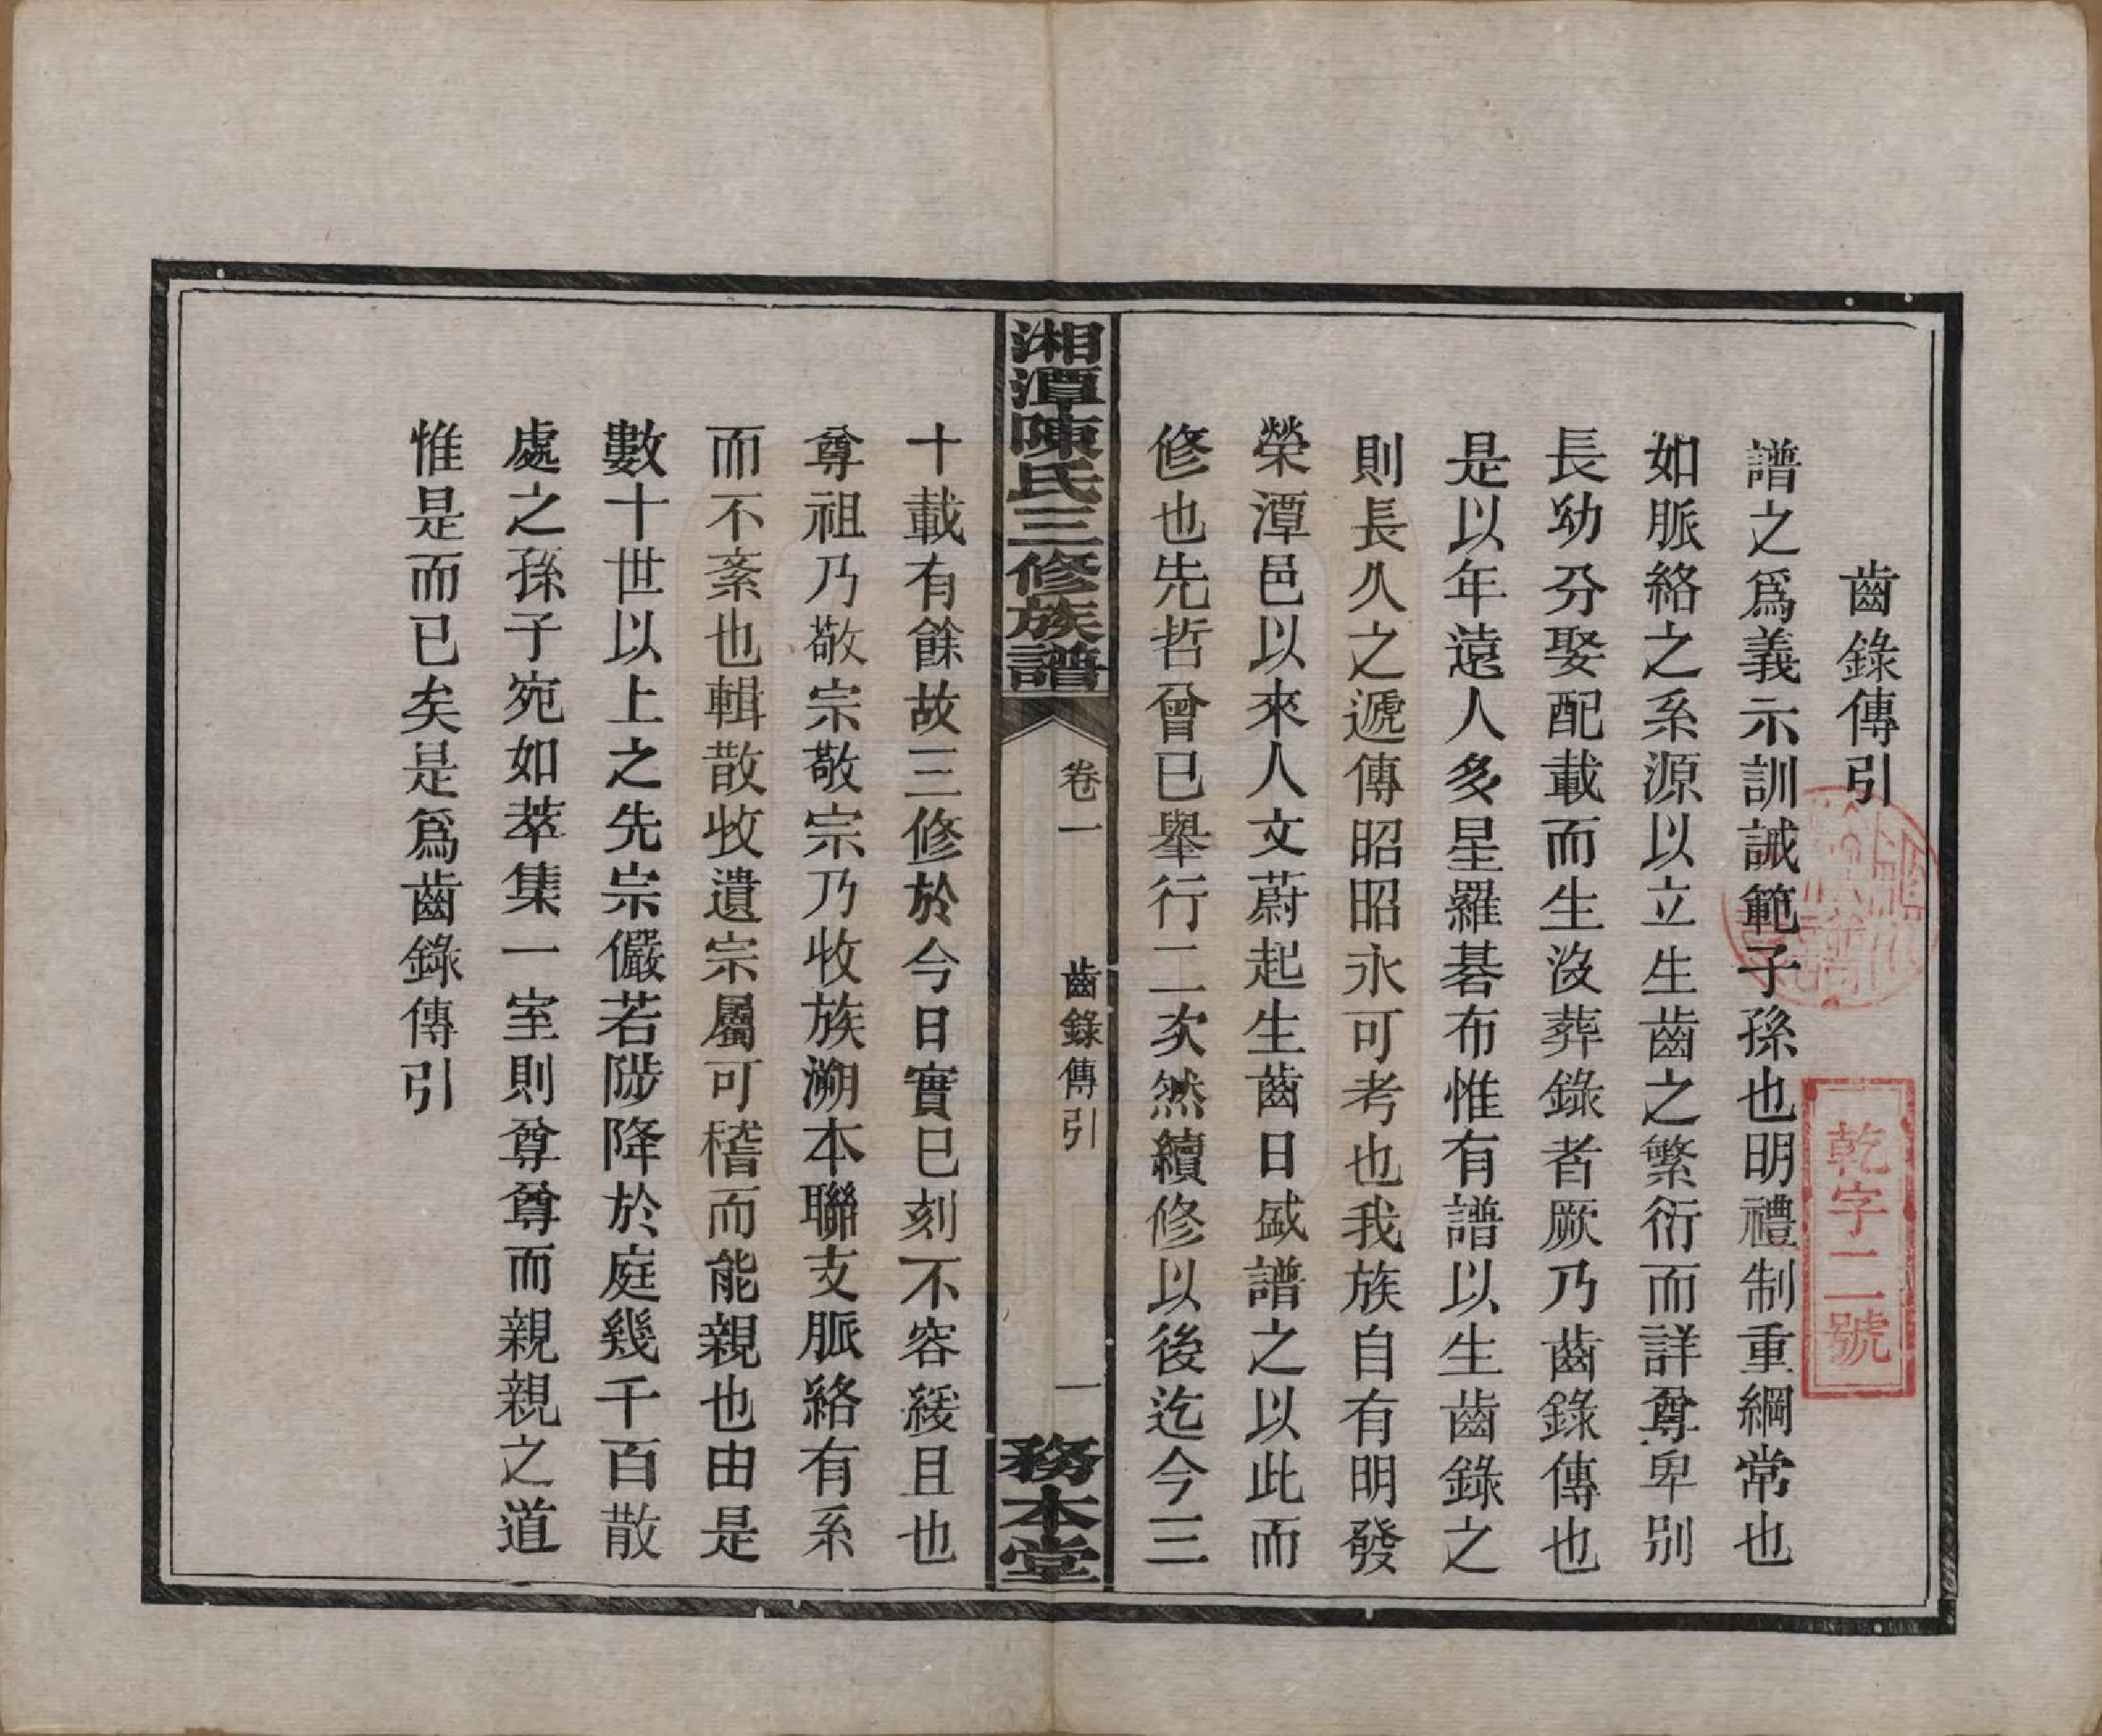 齒錄傳引
譜之爲義示訓誡範子孫也明禮制重綱常也
如脈絡之系源以立生齒之繁衍而詳尊卑別
長幼分娶配載而生沒葬錄者厥乃齒錄傳也
是以年遠人多星羅碁布惟有譜以生齒錄之
則長久之遞傳昭昭永可考也我族自有明發
榮潭邑以來人文蔚起生齒日盛譜之以此而
修也先哲曾已舉行二次然續修以後迄今三
湘潭陳氏三修族譜
卷一
齒錄傳引
一
務本堂
十載有餘故三修於今日實已刻不容緩且也
尊祖乃敬宗敬宗乃收族溯本聯支脈絡有系
而不紊也輯散收遺宗屬可稽而能親也由是
數十世以上之先宗儼若陟降於庭幾千百散
處之孫子宛如萃集一室則尊尊而親親之道
惟是而已矣是爲齒錄傳引
乾字二號